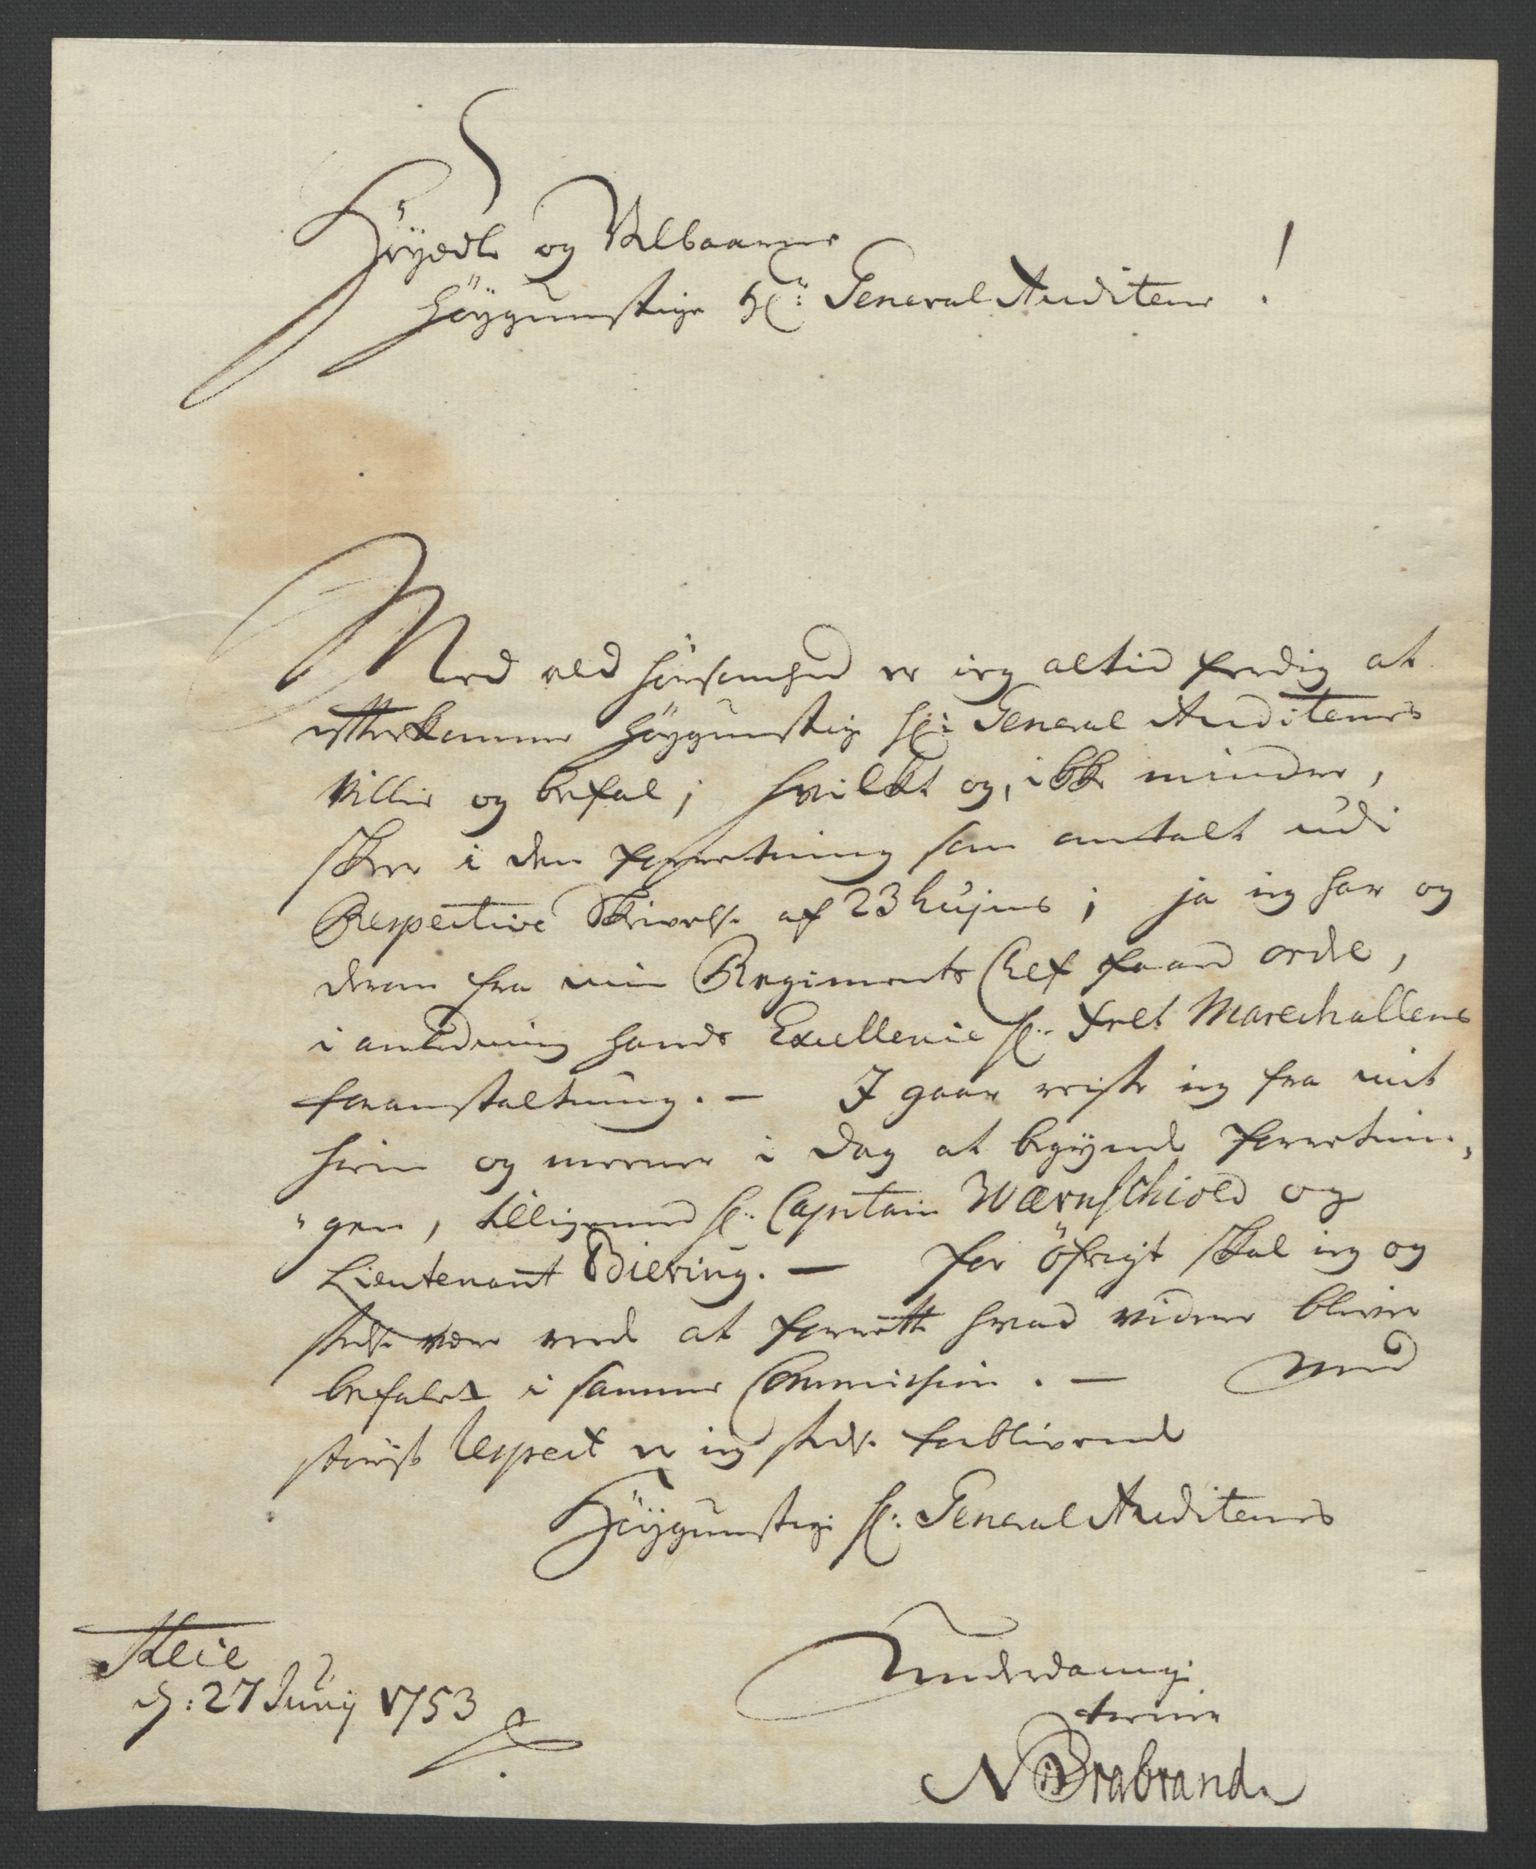 Höyædle og Velbaarne
Höygunstige Hr: General Auditeur !
Med all hörsomhed er ieg altid ferdig at
efterkomme Höygunstige Hr: General Auditeurs
Villie og befal; hvilket og, ikke mindre,
skeer i den forretning som omtalt udi
Respective Skrivelse af 23 hujus; ja ieg har og
derom fra min Regiments Chef faaed ordre,
i anledning hands Excellence Hr: Felt Marechallens
foranstaltning. — I gaar reiste ieg fra mit
hiem og meener i dag at begynde forretnin-
gen, tilligemed Hr: Capitain Wærnschiold og
Lieutenant Biering. — for öfrigt skal ieg og
stedse være rede at forrette hvad videre bliver
befalet i samme Commission. — Med
störst Respect er ieg stedse forblivende
Höygunstige Hr: General Auditeurs
Underdanige
tienner
N Brabrand
Kleie
d: 27 Junij 1753